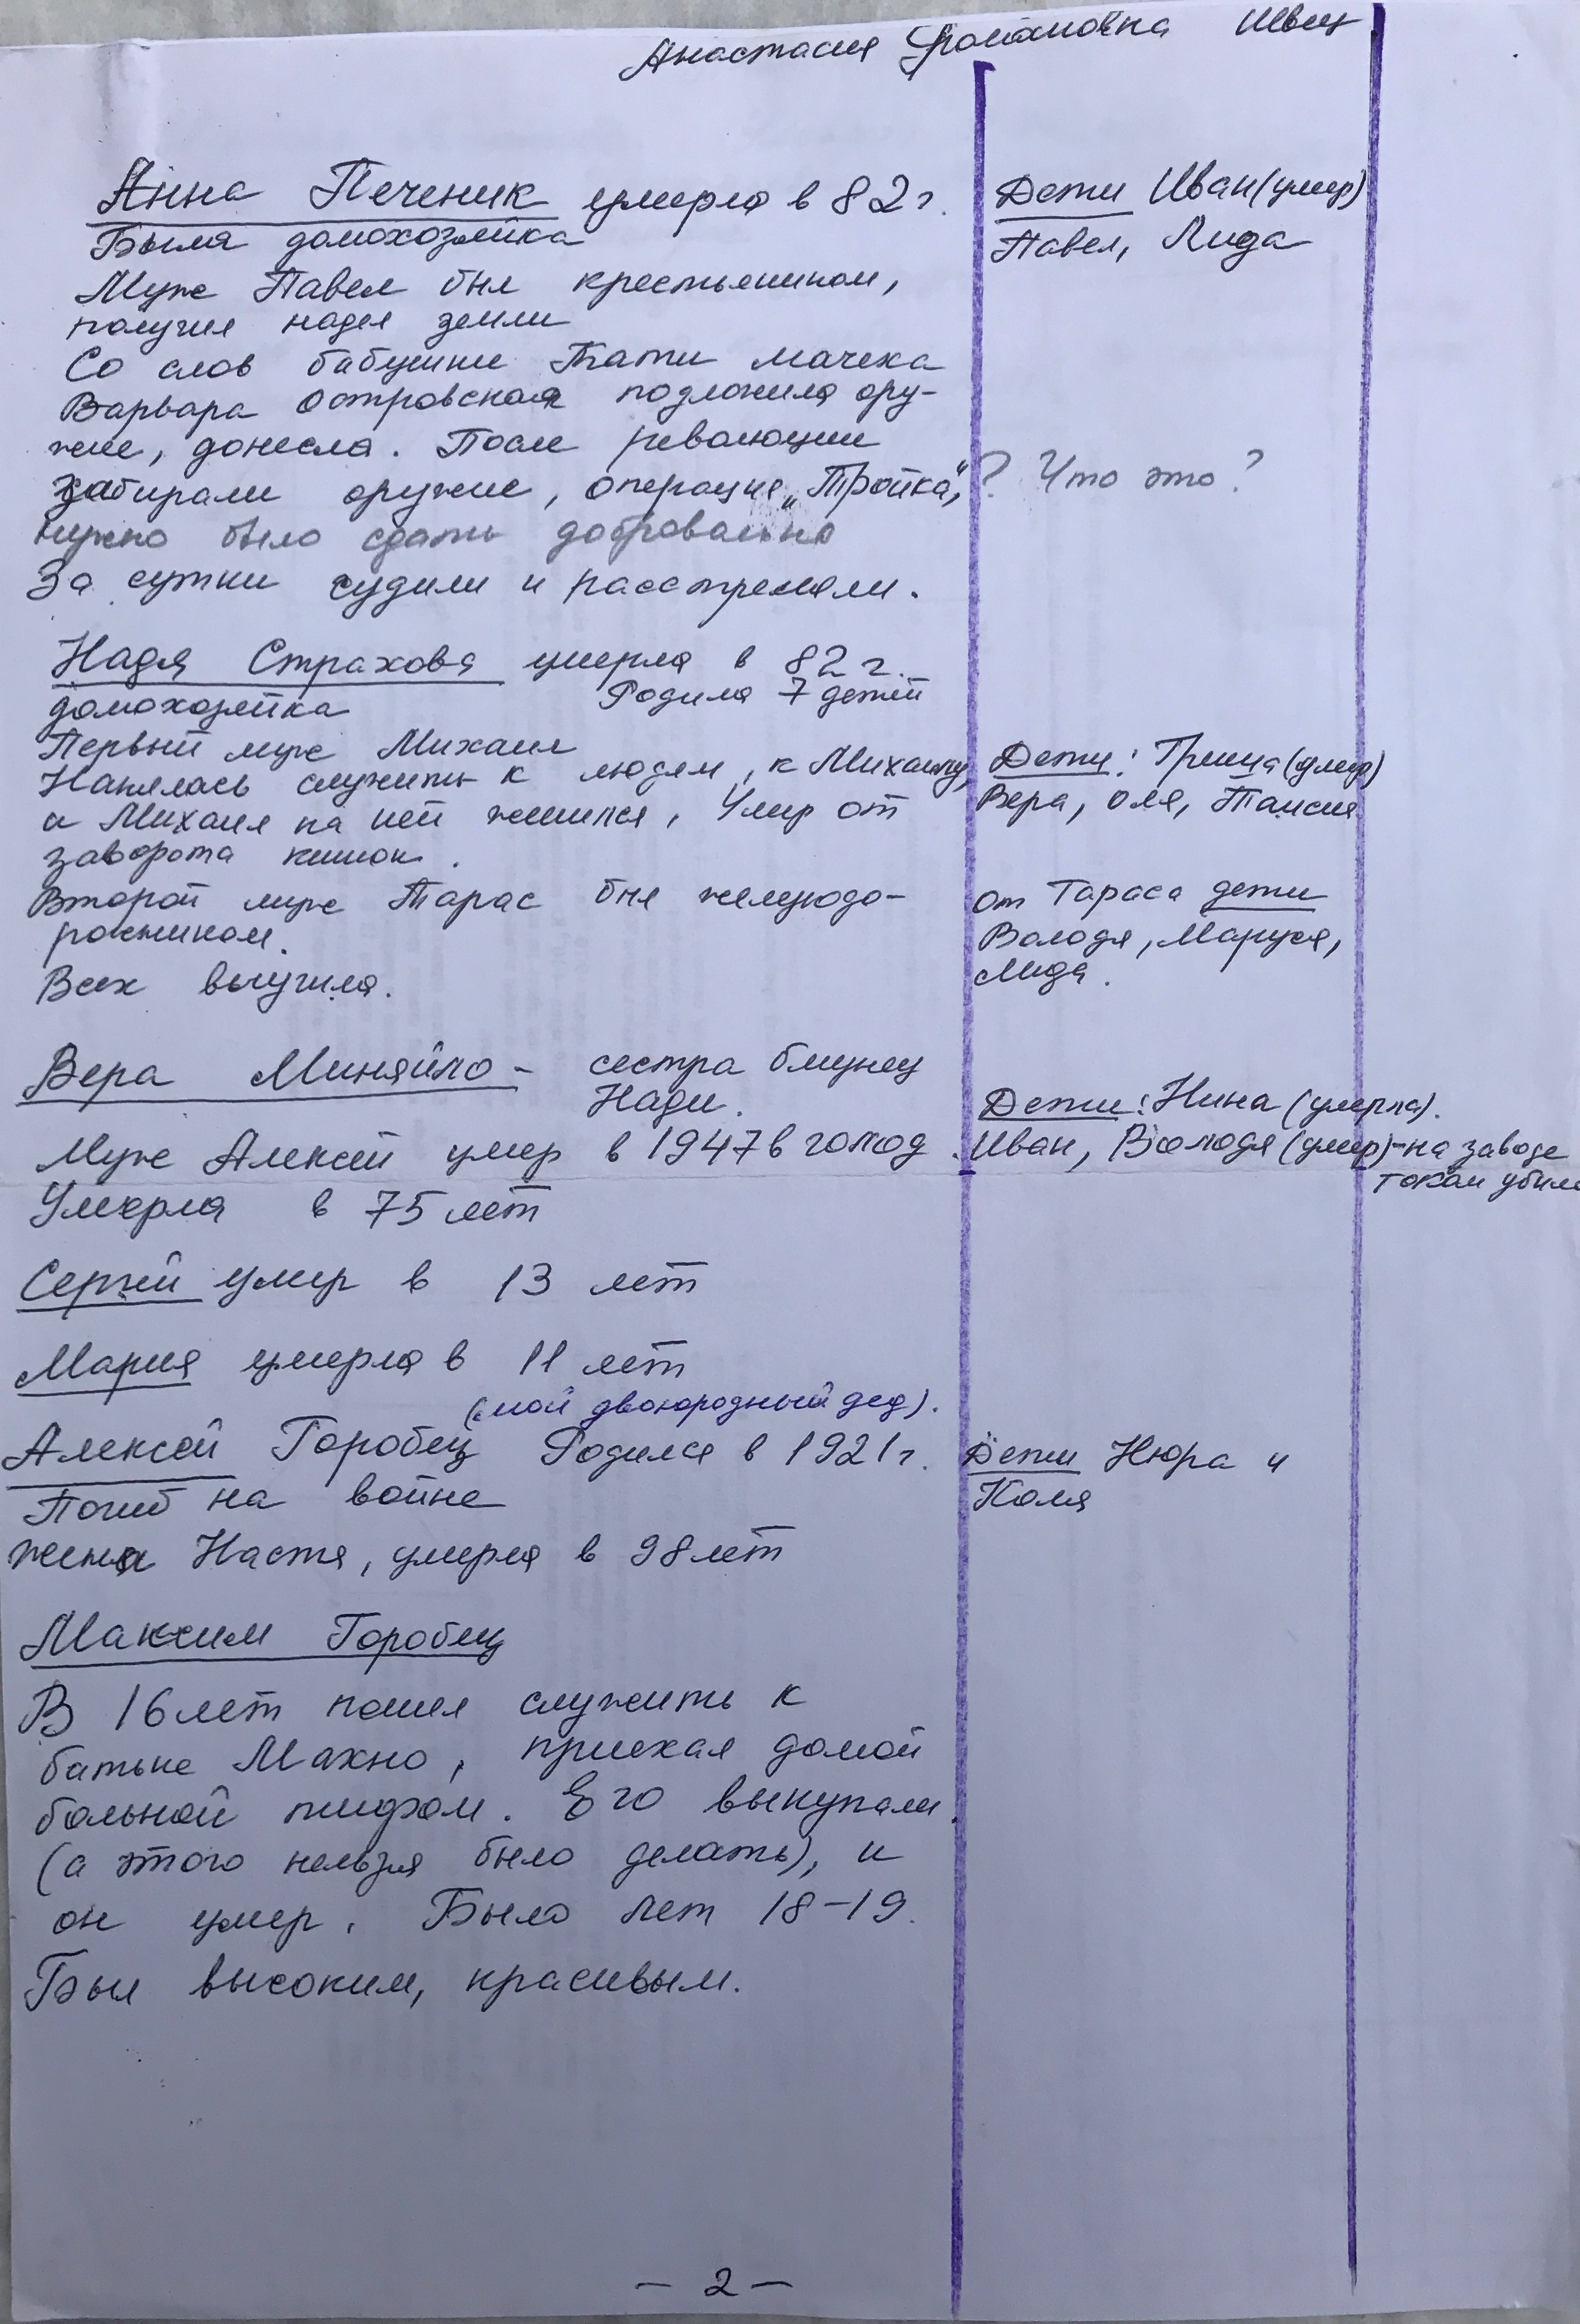 Анастасия Романовна Швец
Анна Печеник умерла в 82 г.
Была домохозяйка
Муж Павел был крестьянином,
получил надел земли
Со слов бабушки Тати мачеха
Варвара Островская подложила ору-
жие, донесла. После революции
забирали оружие, операция „Тройка“,
нужно было сдать добровально
За сутки судили и расстреляли.
Дети Иван (умер)
Павел, Лида
? Что это?
Надя Страхова умерла в 82 г.
домохозяйка Родила 7 детей
Первый муж Михаил
Нанялась служить к людям, к Михаилу,
и Михаил на ней женился, Умер от
заворота кишок.
Второй муж Тарас был железнодо-
рожником.
Всех выучила.
Дети: Гриша (умер)
Вера, Оля, Таисия
от Тараса дети
Володя, Маруся,
Лида.
Вера Миняйло - сестра близнец
Нади.
Муж Алексей умер в 1947 в голод.
Умерла в 75 лет
Дети: Нина (умерла).
Иван, Володя (умер) - на заводе
током убило
Сергей умер в 13 лет
Мария умерла в 11 лет
(мой двоюродный дед).
Алексей Горобец Родился в 1921 г.
Погиб на войне
жена Настя, умерла в 98 лет
Дети Нюра и
Коля
Максим Горобец
В 16 лет пошел служить к
батьке Махно, приехал домой
больной тифом. Его выкупали
(а этого нельзя было делать), и
он умер. Было лет 18-19.
Был высоким, красивым.
- 2 -